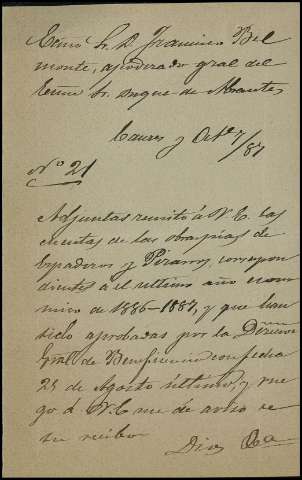 Excmo Sr. D. Francisco Bel
monte, apoderado gral del
Excmo Sr. Duque de Abrantes
Caceres y Octe 7/87
Nº 21
Adjuntas remito á V. E. las
cuentas de las obras pias de
Espaderos y Pizarro, correspon
dientes á el ultimo año econo
mico de 1886-1887, y que han
sido aprobadas por la Direccion
Gral de Beneficencia con fecha
25 de Agosto último, y rue
go á V. E. me de aviso de
su recibo
Dios